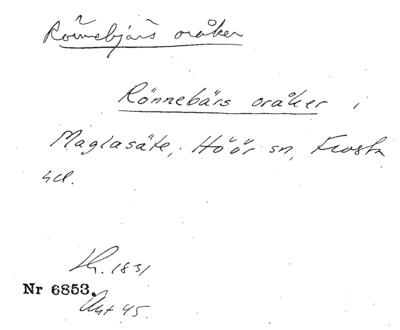 Rönnebjärs oråker
Rönnebärs oråker i
Maglasäte, Höör sn, Frosta
hd.
Lh. 1831
Nr 6853.
Akt 45.